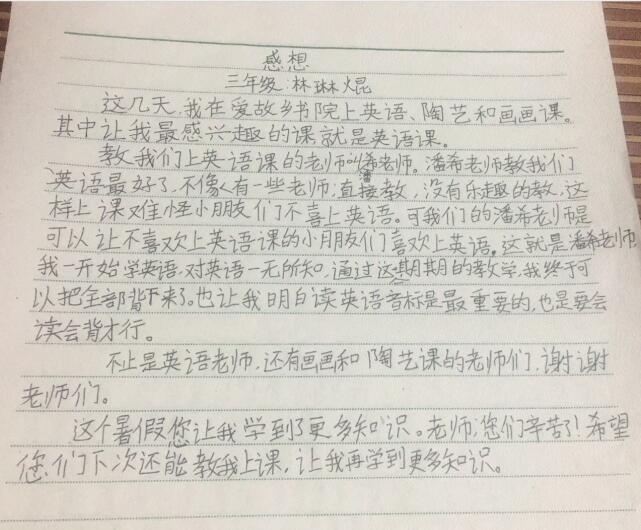 感想
三年级:林琳焜
这几天,我在爱故乡书院上英语、陶艺和画画课。
其中让我最感兴趣的课就是英语课。
教我们上英语课的老师叫潘希老师。潘希老师教我们
英语最好了,不像有一些老师,直接教,没有乐趣的教,这
样上课难怪小朋友们不喜上英语。可我们的潘希老师是
可以让不喜欢上英语课的小朋友们喜欢上英语。这就是潘希老师
我一开始学英语,对英语一无所知,通过这期的教学,我终于可
以把全部背下来了。也让我明白读英语音标是最重要的,也是要会
读会背才行。
不止是英语老师,还有画画和陶艺课的老师们,谢谢
老师们。
这个暑假您让我学到了更多知识。老师,您们辛苦了!希望
您们下次还能教我上课,让我再学到更多知识。